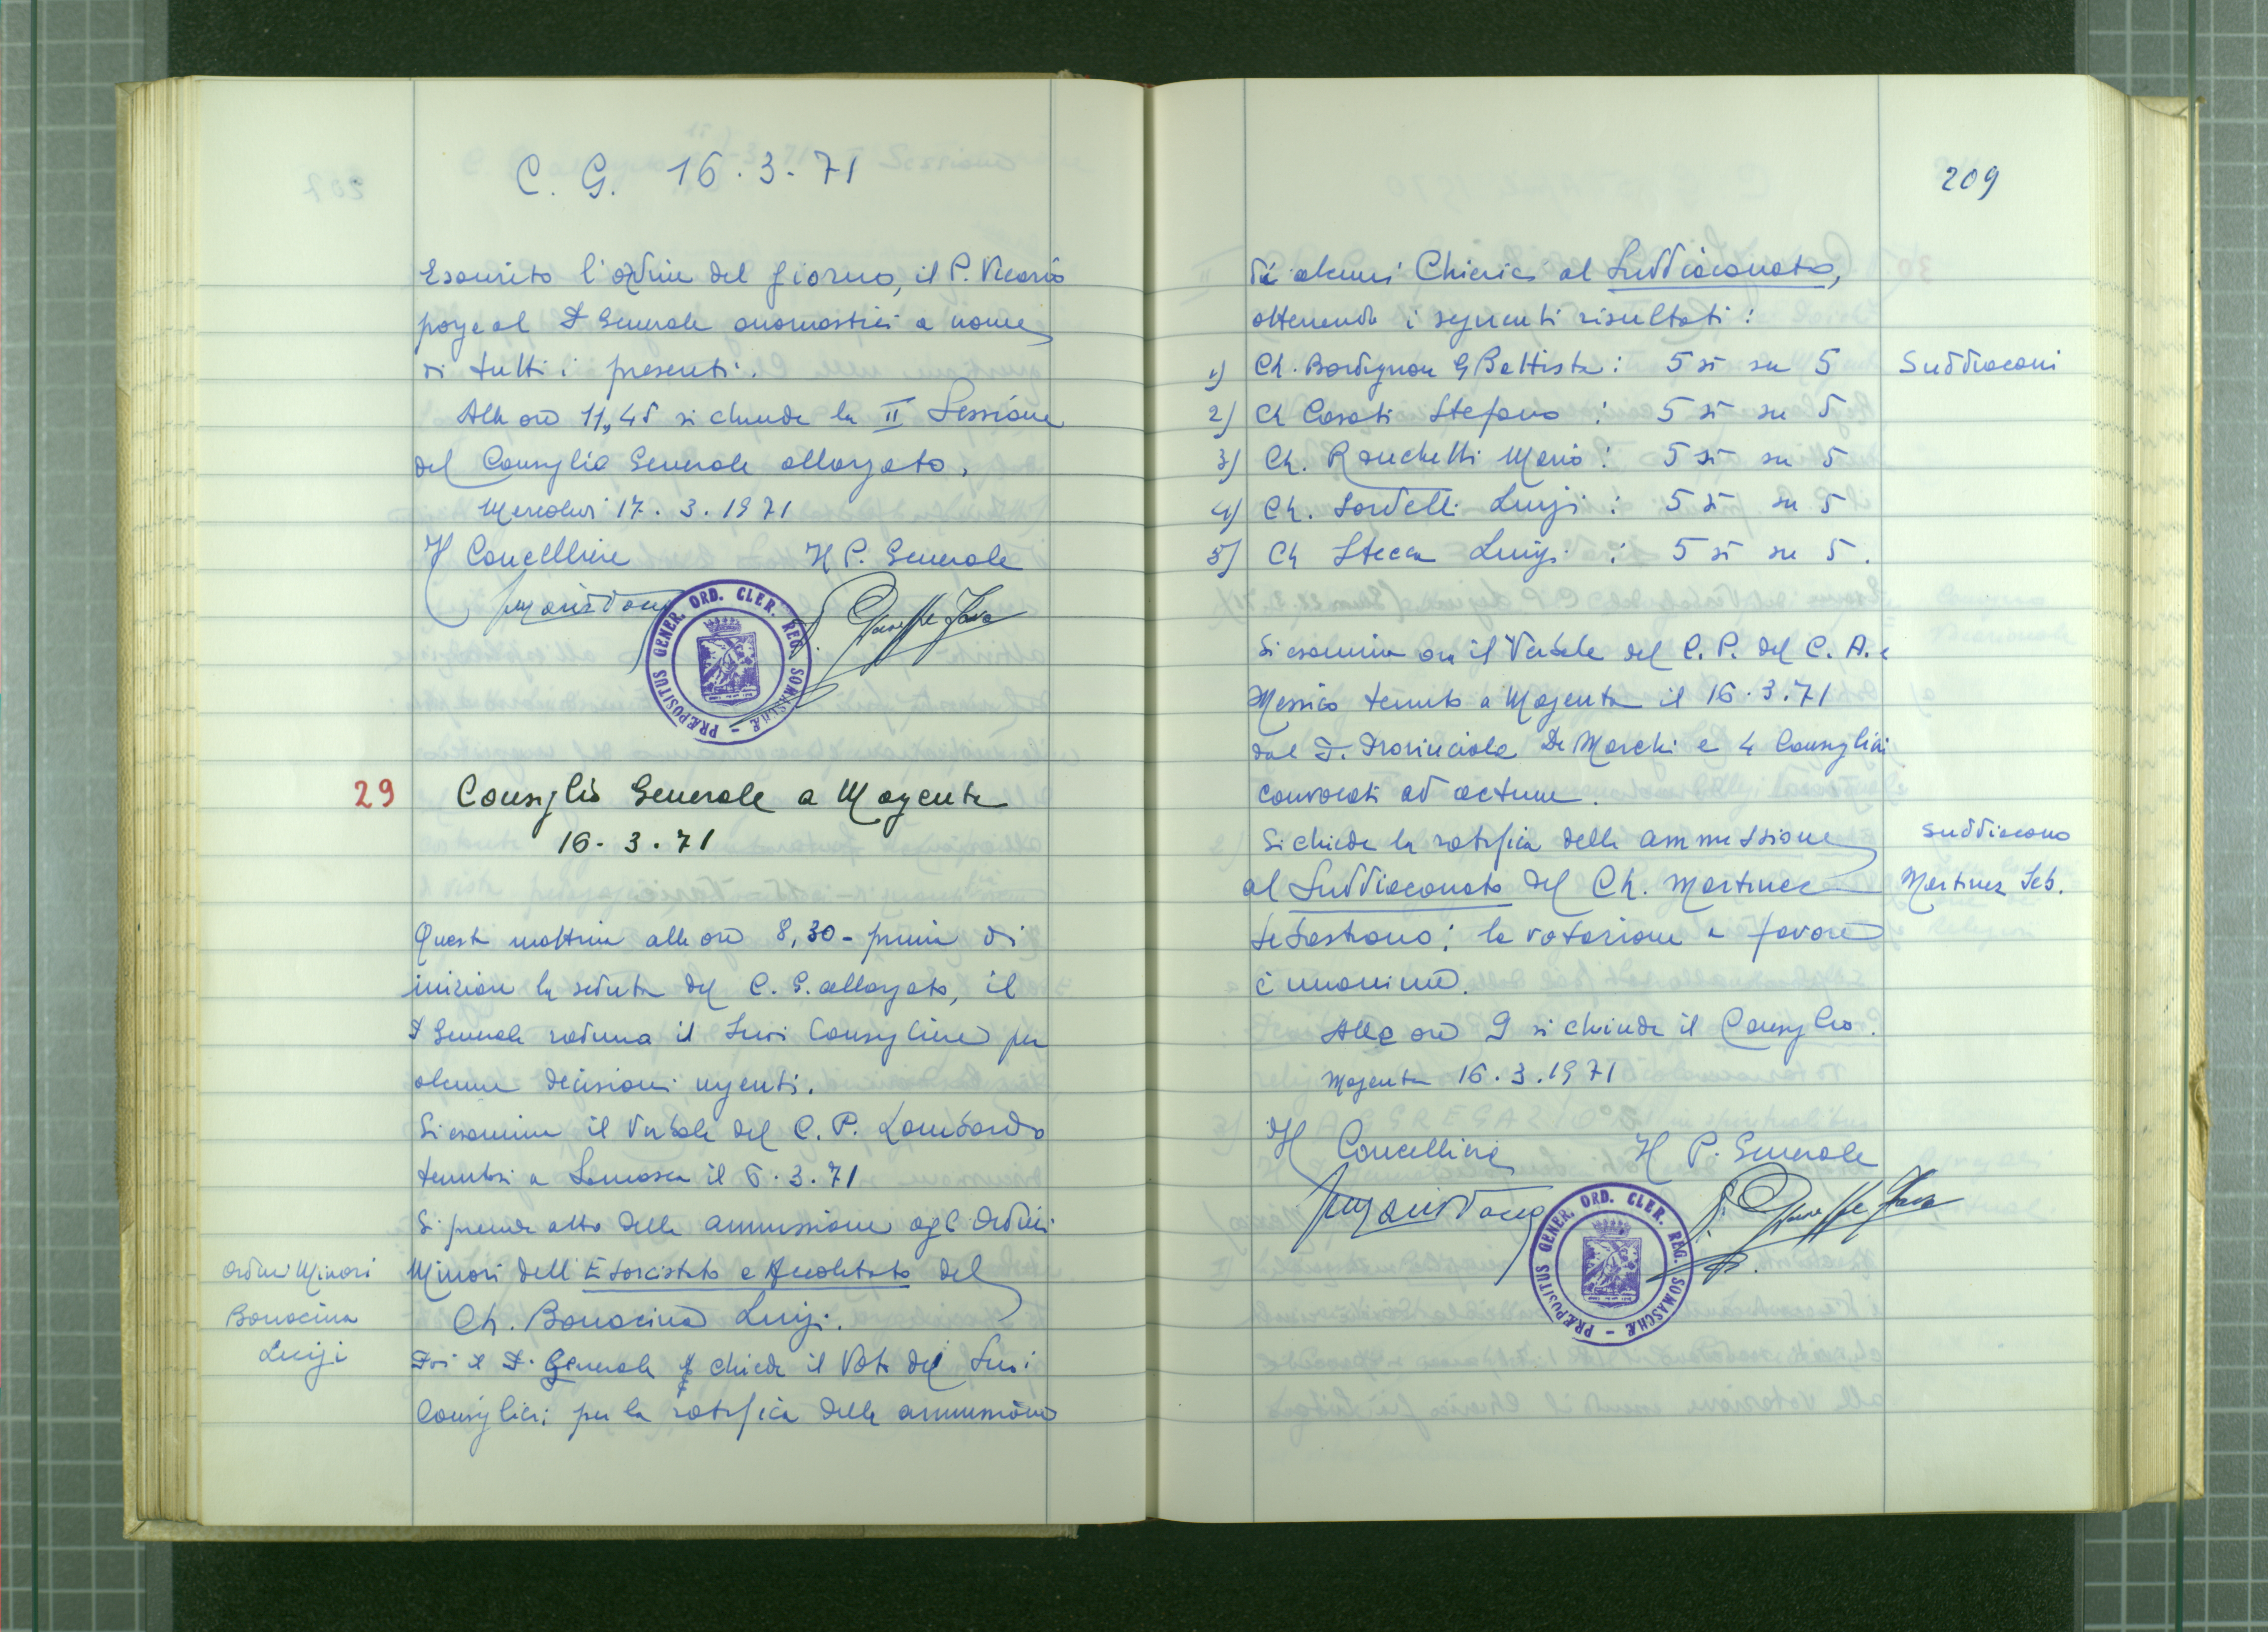 C. G. 16.3.71
Esaurito l'ordine del giorno, il P. Vicario
porge al P. Generale onomastici a nome
di tutti i presenti.
Alle ore 11,45 si chiude la II Sessione
del Consiglio Generale allargato.
Mercoledì 17.3.1971
Il Cancelliere Il P. Generale
P. Giuseppe Fava
PRÆPOSITUS GENER. ORD. CLER. REG. SOMASCHÆ
29 Consiglio Generale a Magenta
16.3.71
Questa mattina alle ore 8,30 - prima di
iniziare la seduta del C. G. allargato, il
P. Generale raduna i Suoi Consiglieri per
alcune decisioni urgenti.
Si esamina il Verbale del C. P. Lombardo
tenutosi a Somasca il 6.3.71
Si prende atto della ammissione agli Ordini
Ordini Minori
Minori dell'Esorcistato e Accolitato del
Bonacina
Ch. Bonacina Luigi.
Luigi
Poi il P. Generale chiede il Voto dei Suoi
Consiglieri per la ratifica della ammissione
209
di alcuni Chierici al Suddiaconato,
ottenendo i seguenti risultati:
1) Ch. Bordignon G Battista: 5 sì su 5 Suddiaconi
2) Ch Casati Stefano: 5 sì su 5
3) Ch. Ronchetti Mario: 5 sì su 5
4) Ch. Sordelli Luigi: 5 sì su 5
5) Ch Stecca Luigi: 5 sì su 5.
Si esamina ora il Verbale del C. P. del C. A. e
Messico tenuto a Magenta il 16.3.71
dal P. Provinciale De Marchi e 4 Consiglieri
convocati ad actum.
Si chiede la ratifica della ammissione Suddiacono
al Suddiaconato del Ch. Martinez Martinez Seb.
Sebastiano; la votazione a favore
è unanime.
Alle ore 9 si chiude il Consiglio.
Magenta 16.3.1971
Il Cancelliere Il P. Generale
P. Giuseppe Fava
PRÆPOSITUS GENER. ORD. CLER. REG. SOMASCHÆ